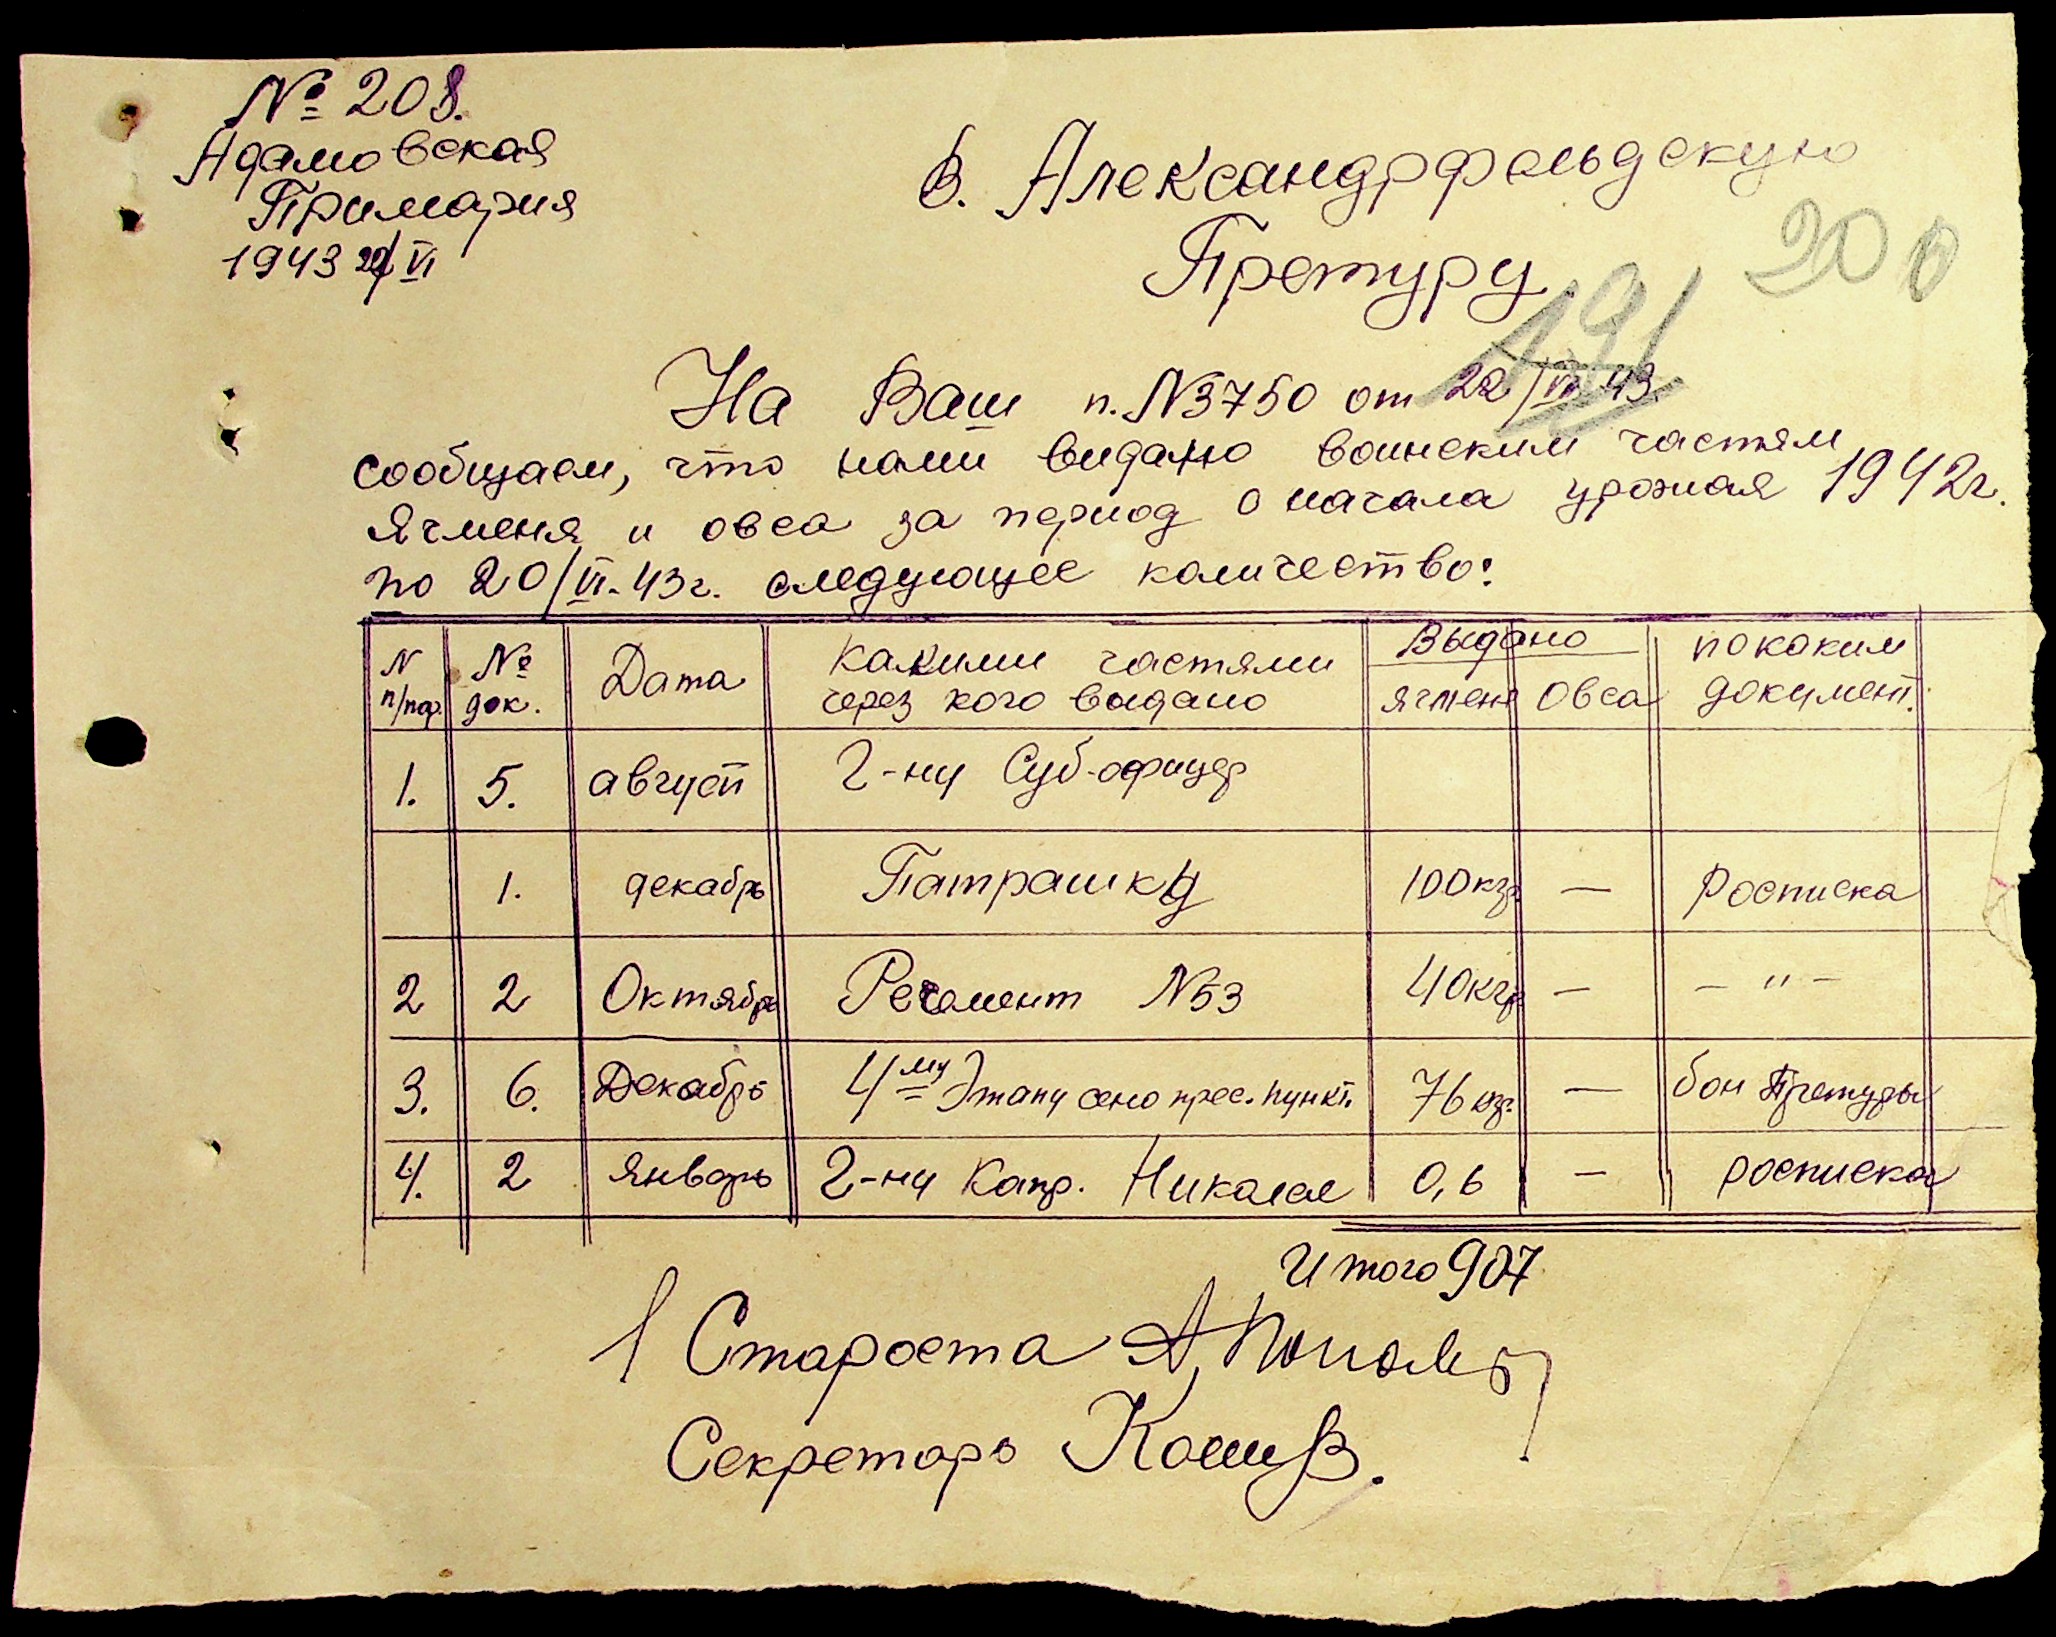 № 208.
Адамовская
Примария
1943 20/VI
В. Александрфельдскую
Претуру
200
191
На Ваш п. №3750 от 22/VI 43.
сообщаем, что нами видано воинским частям
ячменя и овса за период с начала урожая 1942г.
по 20/VI-43г. следующее количество:
N п/пор. № док. Дата Какими частями через кого видано Выдано ячменя Овса по каким документ.
1. 5. август Г-ну Суб-офицер
1. декабрь Патрашку 100кгр — Росписка
2 2 Октябрь Регемент №53 40кгр — — " —
3. 6. Декабрь 4му Этапу сено прес. пункт. 76кгр. — бон Претуры
4. 2 январь Г-ну Капр. Николае 0,6 — росписка
Итого 907
Староста
Секретарь